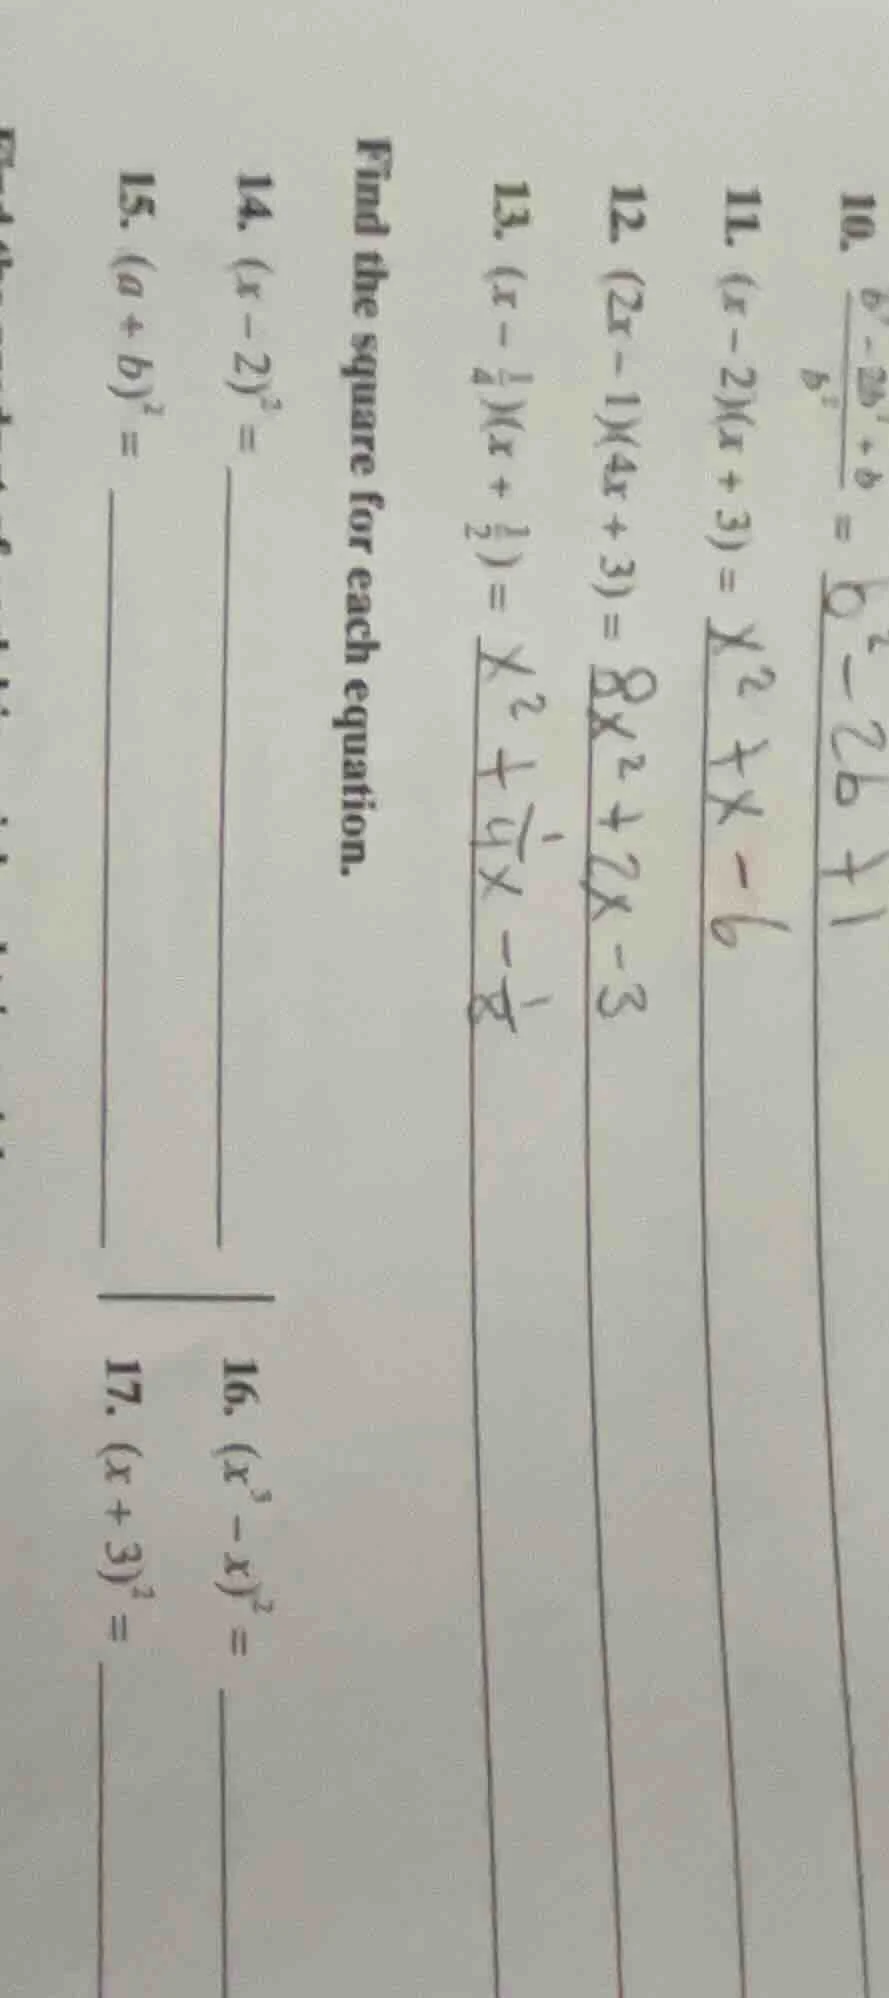 10. = b² - 2b + 1
11. (x - 2)(x + 3) = x² + x - 6
12. (2x - 1)(4x + 3) = 8x² + 2x - 3
13. (x - 1/4)(x + 1/2) = x² + 1/4x - 1/8
Find the square for each equation.
14. (x - 2)² =
15. (a + b)² =
16. (x³ - x)² =
17. (x + 3)² =